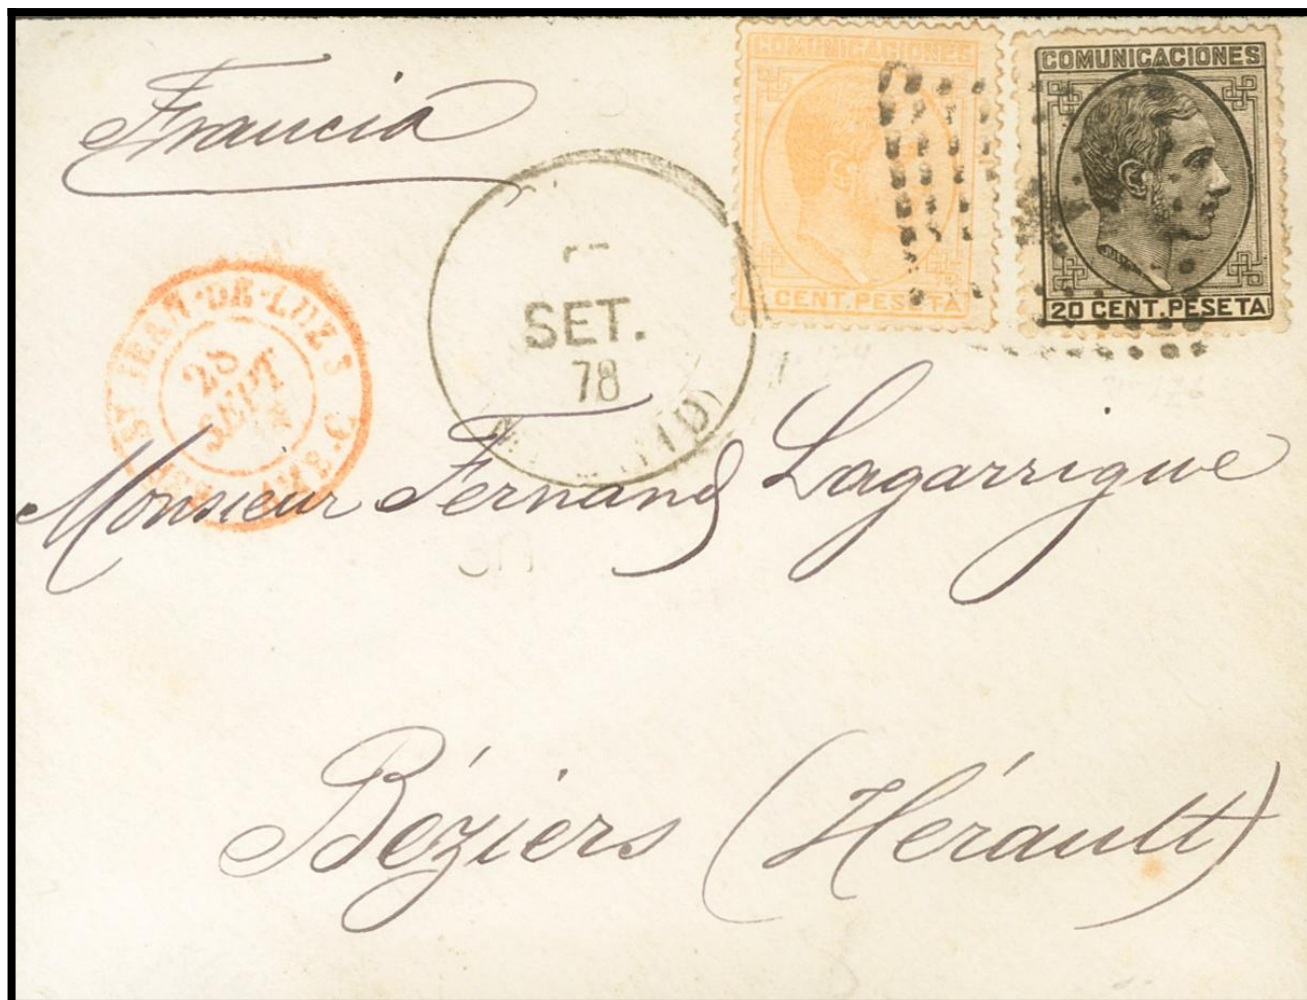 Francia
COMUNICACIONES
CENT. PESETA
COMUNICACIONES
20 CENT. PESETA
SET.
78
ST JEAN-DE-LUZ
28
SEPT
Monsieur Fernand Lagarrigue
Béziers (Hérault)